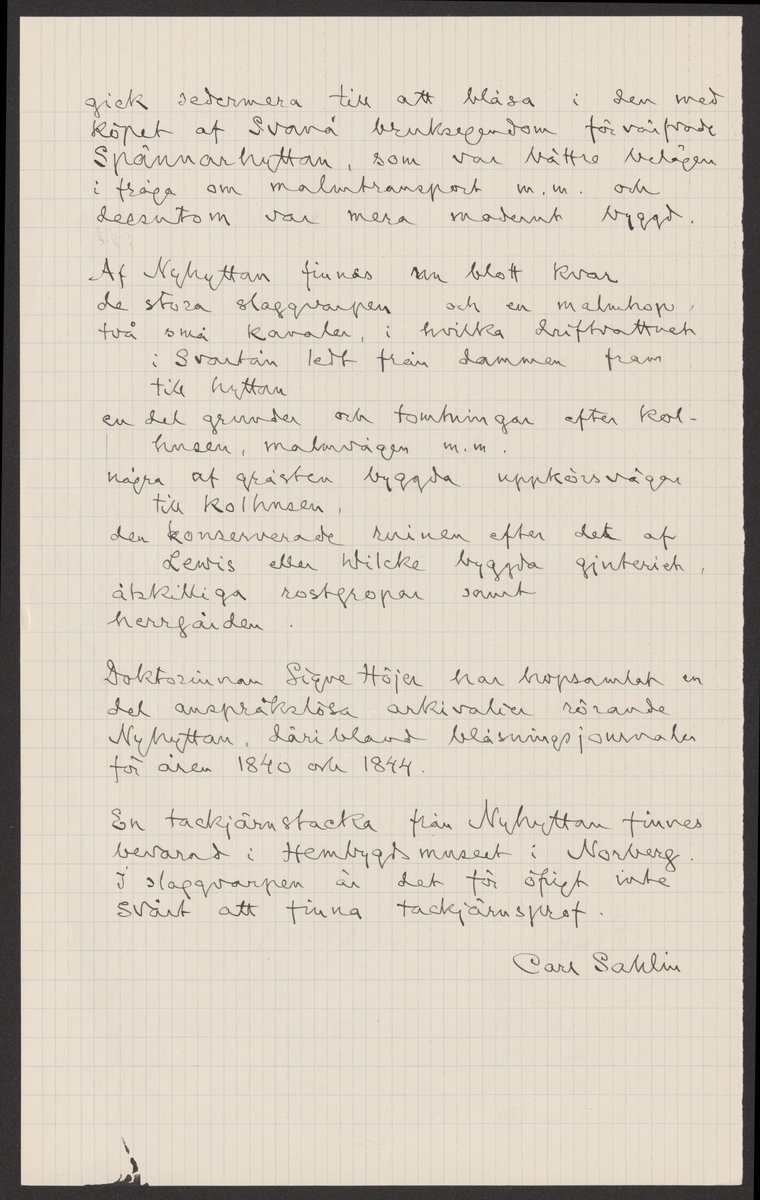 gick sedermera till att blåsa i den med
köpet af Svanå bruksegendom förvärfvade
Spännarhyttan, som var bättre belägen
i fråga om malmtransport m.m. och
dessutom var mera modernt byggd.
Af Nyhyttan finnes nu blott kvar
de stora slaggvarpen och en malmhop,
två små kanaler, i hvilka driftvattnet
i Svartån ledt från dammen fram
till hyttan
en del grunder och tomtningar efter kol-
husen, malmvågen m.m.
några af gråsten byggda uppkörsvägar
till kolhusen,
den konserverade ruinen efter det af
Lewis eller Wilcke byggda gjuteriet,
åtskilliga rostgropar samt
herrgården.
Doktorinnan Signe Höjer har hopsamlat en
del anspråkslösa arkivalier rörande
Nyhyttan, däribland blåsningsjournaler
för åren 1840 och 1844.
En tackjärnstacka från Nyhyttan finnes
bevarad i Hembygdsmuseet i Norberg.
I slaggvarpen är det för öfrigt inte
svårt att finna tackjärnsprof.
Carl Sahlin